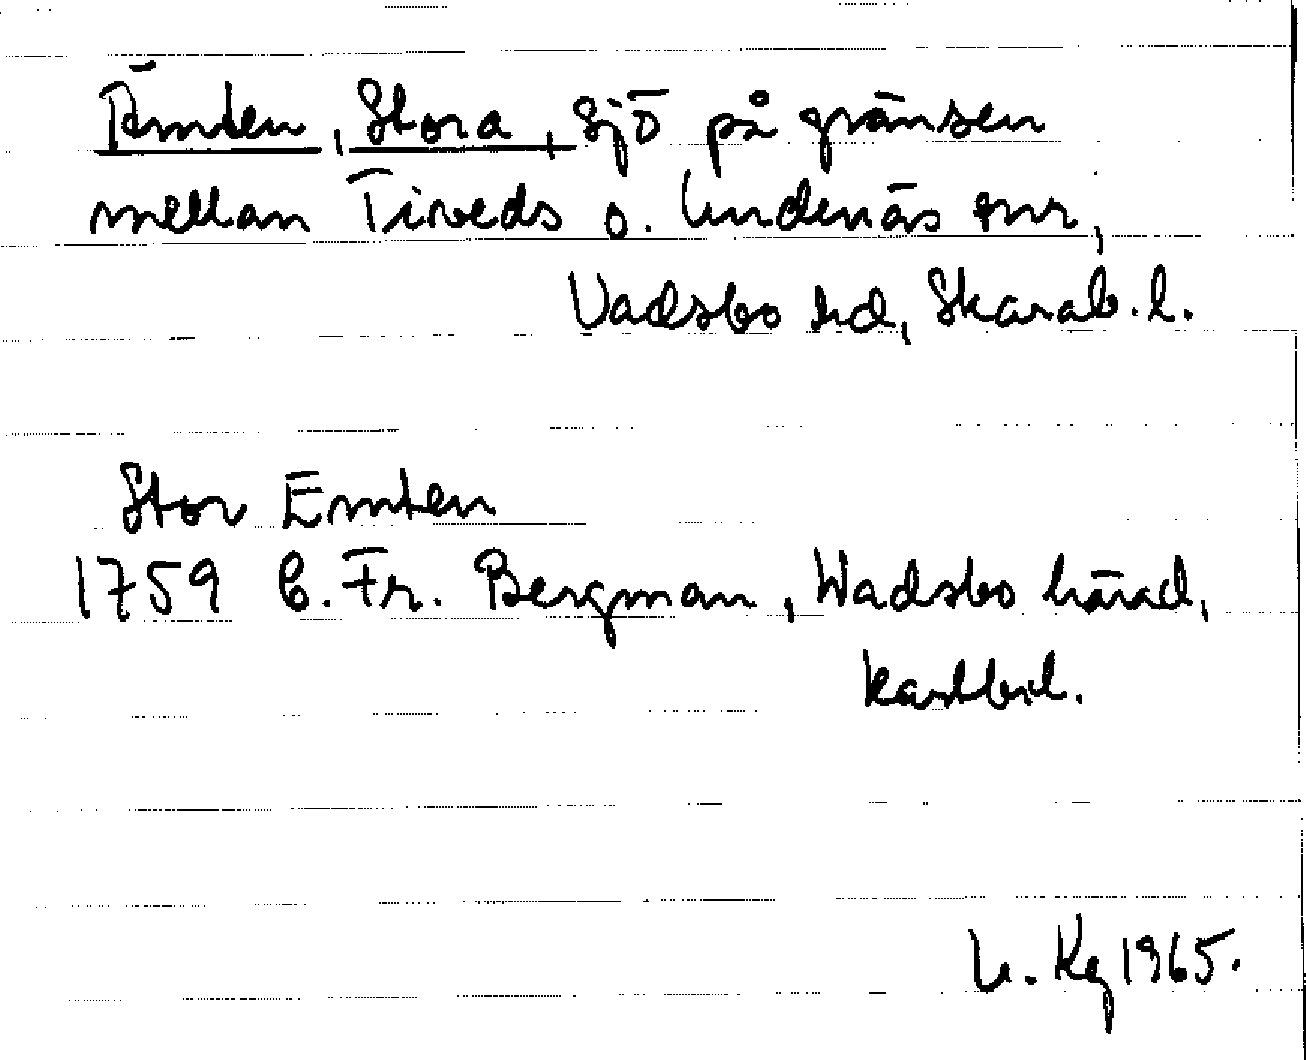 Ämten, Stora, sjö på gränsen
mellan Tiveds o. Undenäs snr,
Vadsbo hd, Skarab. l.
Stor Emten
1759 C. Fr. Bergman, Wadsbo härad,
kartbil.
U. Kg 1965.